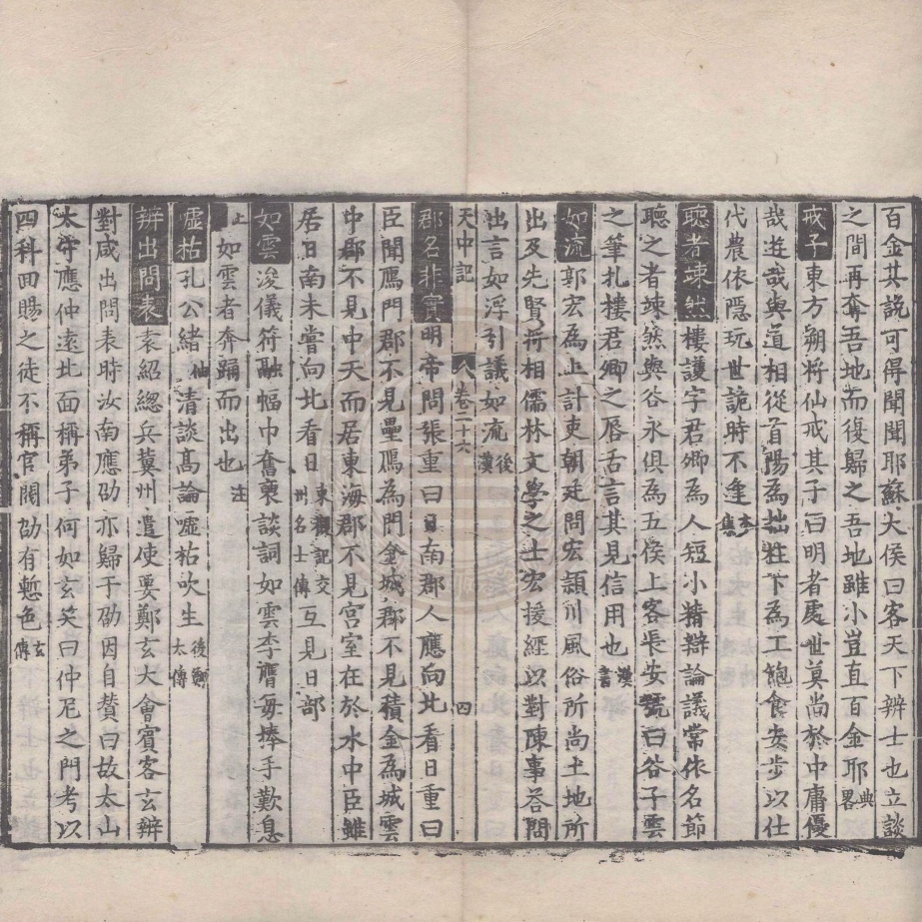 百金其說可得聞聞耶蘇大侯曰客天下辨士也立談
之間再奪吾地而復歸之吾地雖小豈直百金耶典畧
戒子東方朔將仙戒其子曰明者處世莫尚於中庸優
哉遊哉與道相從首陽為拙柱下為工飽食安步以仕
代農依隱玩世詭時不逢本集
聽者竦然樓護字君卿為人短小精辯論議常依名節
聽之者竦然與谷永俱為五侯上客長安號曰谷子雲
之筆札樓君卿之唇舌言其見信用也漢書
如流郭宏為上計吏朝廷問宏潁川風俗所尚土地所
出及先賢將相儒林文學之士宏援經以對陳事荅問
出言如浮引議如流後漢
天中記 卷二十六 四
郡名非實明帝問張重曰日南郡人應向北看日重曰
臣聞鴈門郡不見壘鴈為門金城郡不見積金為城雲
中郡不見中天而居東海郡不見宮室在於水中臣雖
居日南未嘗向北看日東觀記交州名士傳互見日部
如雲浚儀符融幅巾奮裒談詞如雲李膺每捧手歎息
止如雲者奔踊而出也注
噓枯孔公緒伷清談高論噓枯吹生後鄭太傳
辨出問表袁紹總兵冀州遣使要鄭玄大會賓客玄辨
對咸出問表時汝南應劭亦歸于劭因自贊曰故太山
太守應仲遠北面稱弟子何如玄笑曰仲尼之門考以
四科回賜之徒不稱官閥劭有慙色玄傳